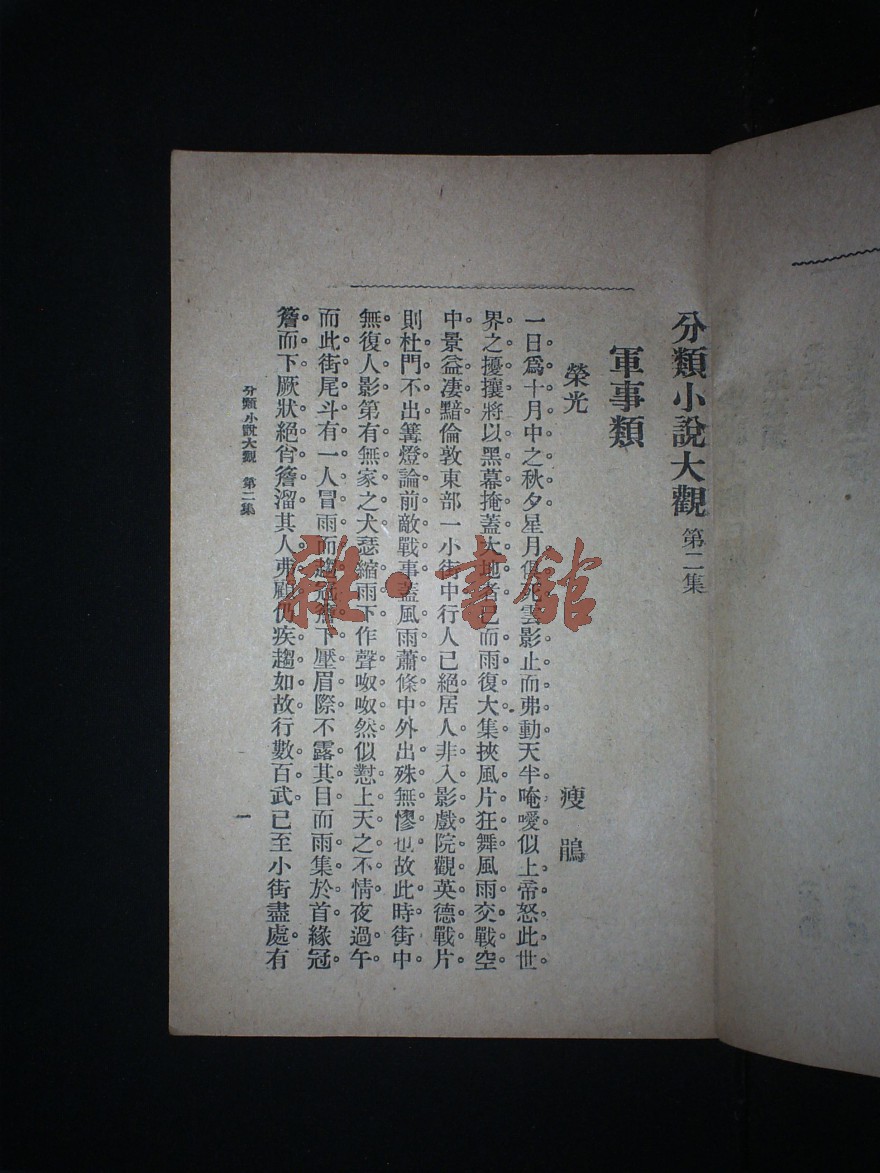 分類小說大觀 第二集
軍事類
榮光 瘦鵑
一日爲十月中之秋夕星月俱死雲影止而弗動天半唵噯似上帝怒此世
界之擾攘將以黑幕掩蓋大地者已而雨復大集挾風片狂舞風雨交戰空
中景益凄黯倫敦東部一小街中行人已絕居人非入影戲院觀英德戰片
則杜門不出篝燈論前敵戰事蓋風雨蕭條中外出殊無憀也故此時街中
無復人影第有無家之犬瑟縮雨下作聲呶呶然似懟上天之不情夜過午
而此街尾斗有一人冒雨而趨冠簷下壓眉際不露其目而雨集於首緣冠
簷而下厥狀絕肖簷溜其人弗顧仍疾趨如故行數百武已至小街盡處有
分類小說大觀 第二集
一
雜·書館